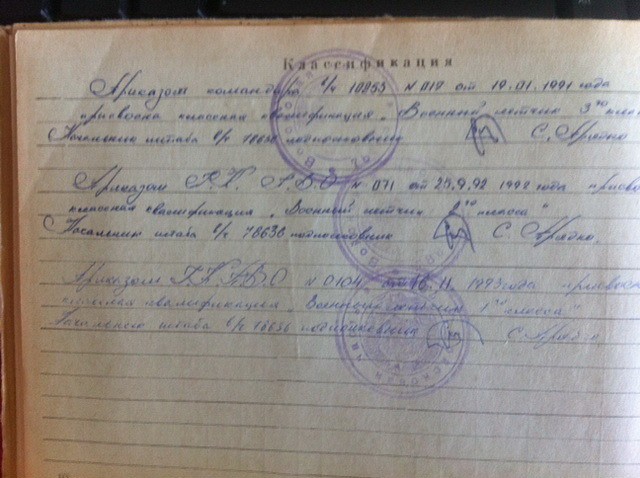 Классификация
Приказом командира в/ч 10253 N 017 от 19.01.1991 года
присвоена классная квалификация „Военный летчик 3го
Начальник штаба в/ч 78636 подполковник С. Прядко
Приказом N 071 от 25.9.92 1992 года
классная квалификация „Военный летчик 2го класса"
Начальник штаба в/ч 78636 подполковник С Прядко.
Приказом N 0104 от 11 1993 года
классная квалификация „Военный летчик 1го класса"
Начальник штаба в/ч 78636 подполковник С Прядко